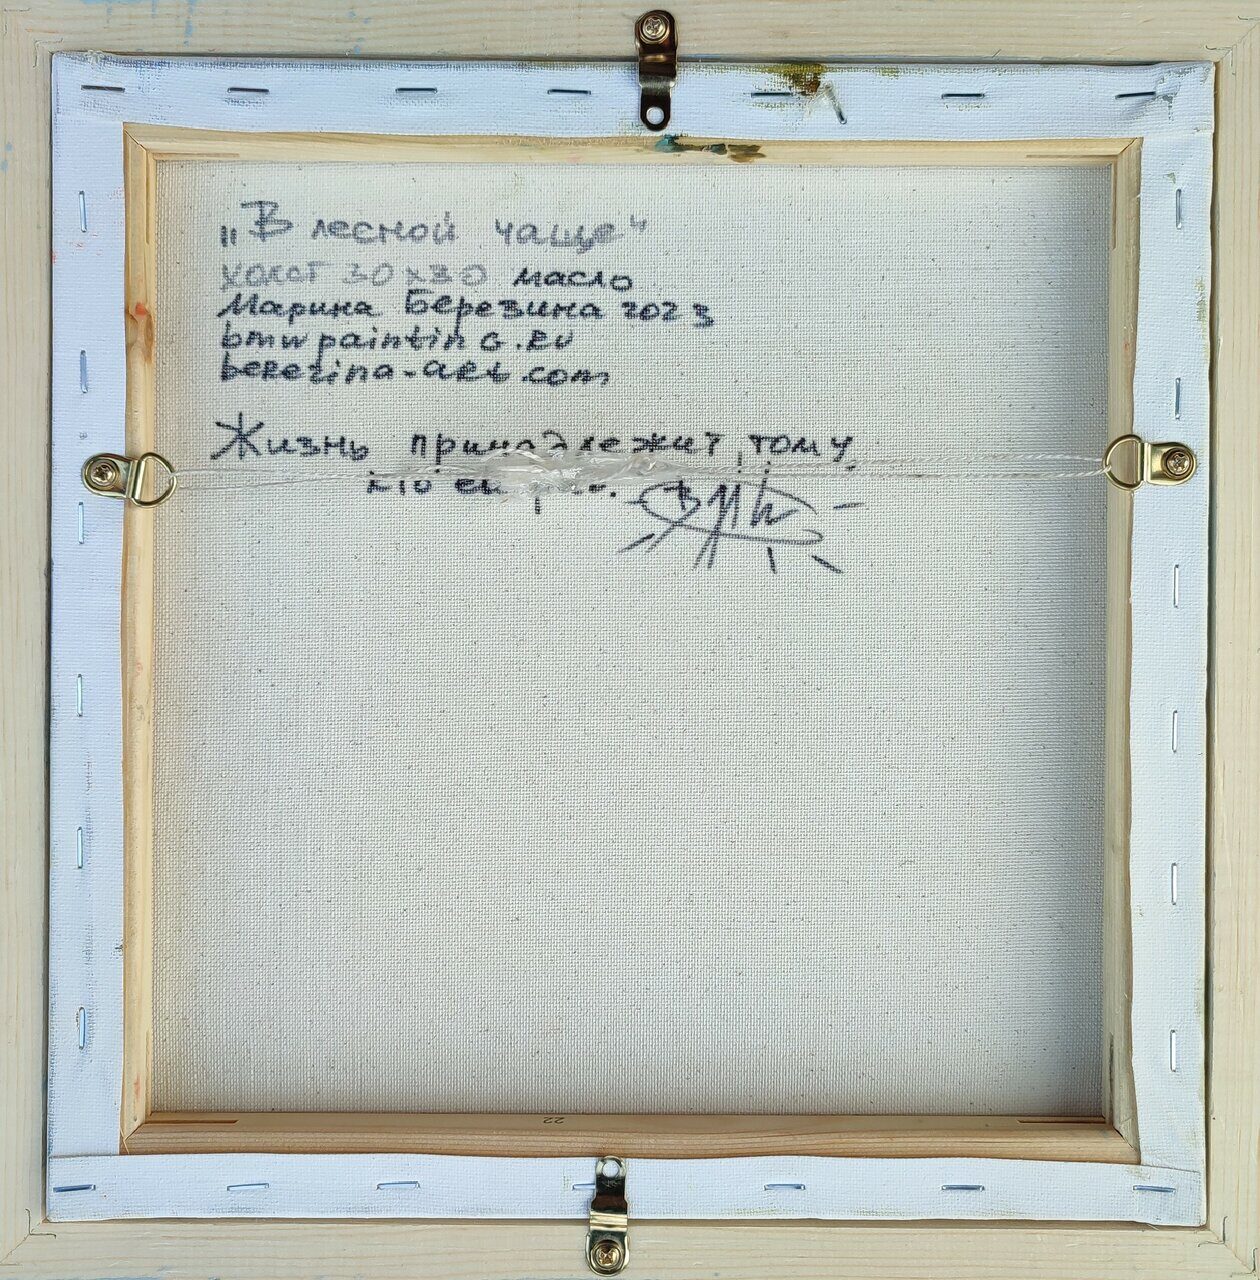 „В лесной чаще"
холст 30х30 масло
Марина Березина 2023
bmwpainting.RU
berezina-art.com
Жизнь принадлежит тому,
кто ей
22